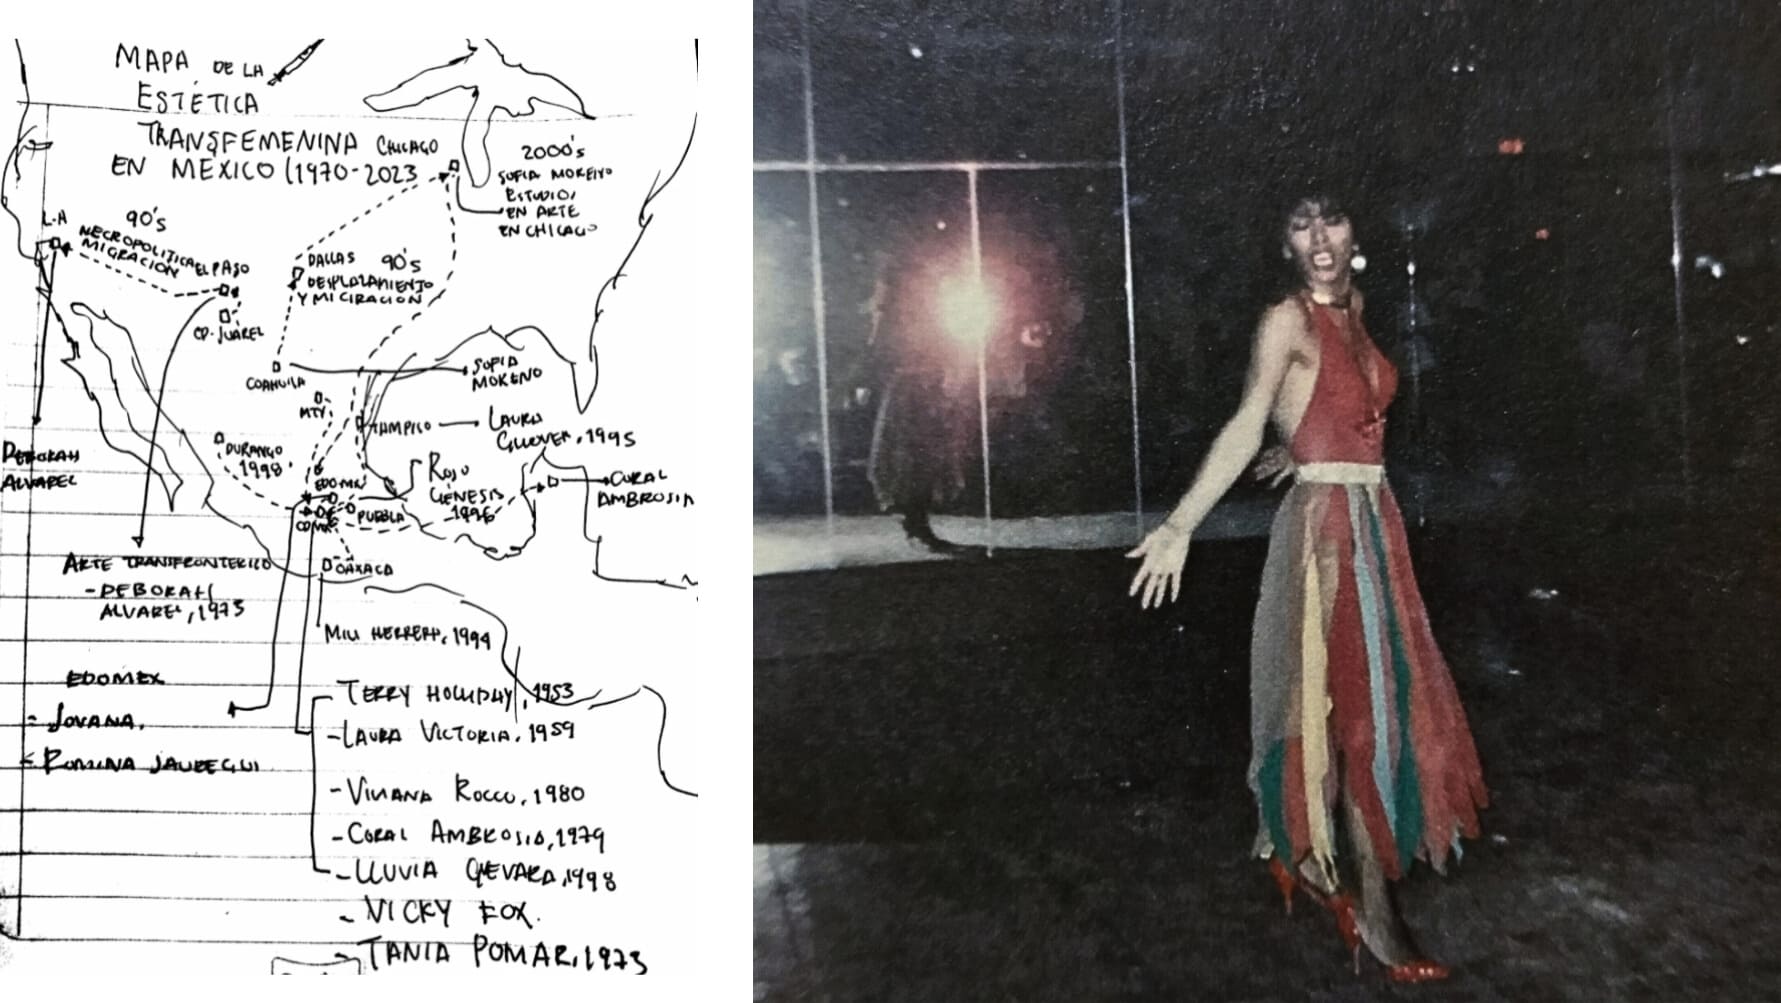 MAPA DE LA
ESTÉTICA
TRANSFEMENINA
EN MEXICO (1970-2023
CHICAGO
2000's
SOFIA MORENO
ESTUDIOS
EN ARTE
EN CHICAGO
L.A
90's
NECROPOLITICA
MIGRACION
EL PASO
CD. JUAREZ
DALLAS
90's
DESPLAZAMIENTO
Y MIGRACION
COAHUILA
SOFIA
MORENO
MTY
TAMPICO
LAURO
1995
DEBORAH
ALVAREZ
DURANGO
1998
EDOMEX
ROJO
GÉNESIS
1996
CORAL
AMBROSIA
CDMX
PUEBLA
OAXACA
ARTE TRANSFRONTERIZO
- DEBORAH
ALVAREZ, 1973
MILI HERRERA, 1994
EDOMEX
- JOVANA.
- ROMINA JAUREGUI
- TERRY HOLLIDAY, 1953
- LAURA VICTORIA, 1959
- VIVIANA ROCCO, 1980
- CORAL AMBROSIA, 1979
- LLUVIA GUEVARA, 1998
- VICKY FOX.
- TANIA POMAR, 1973